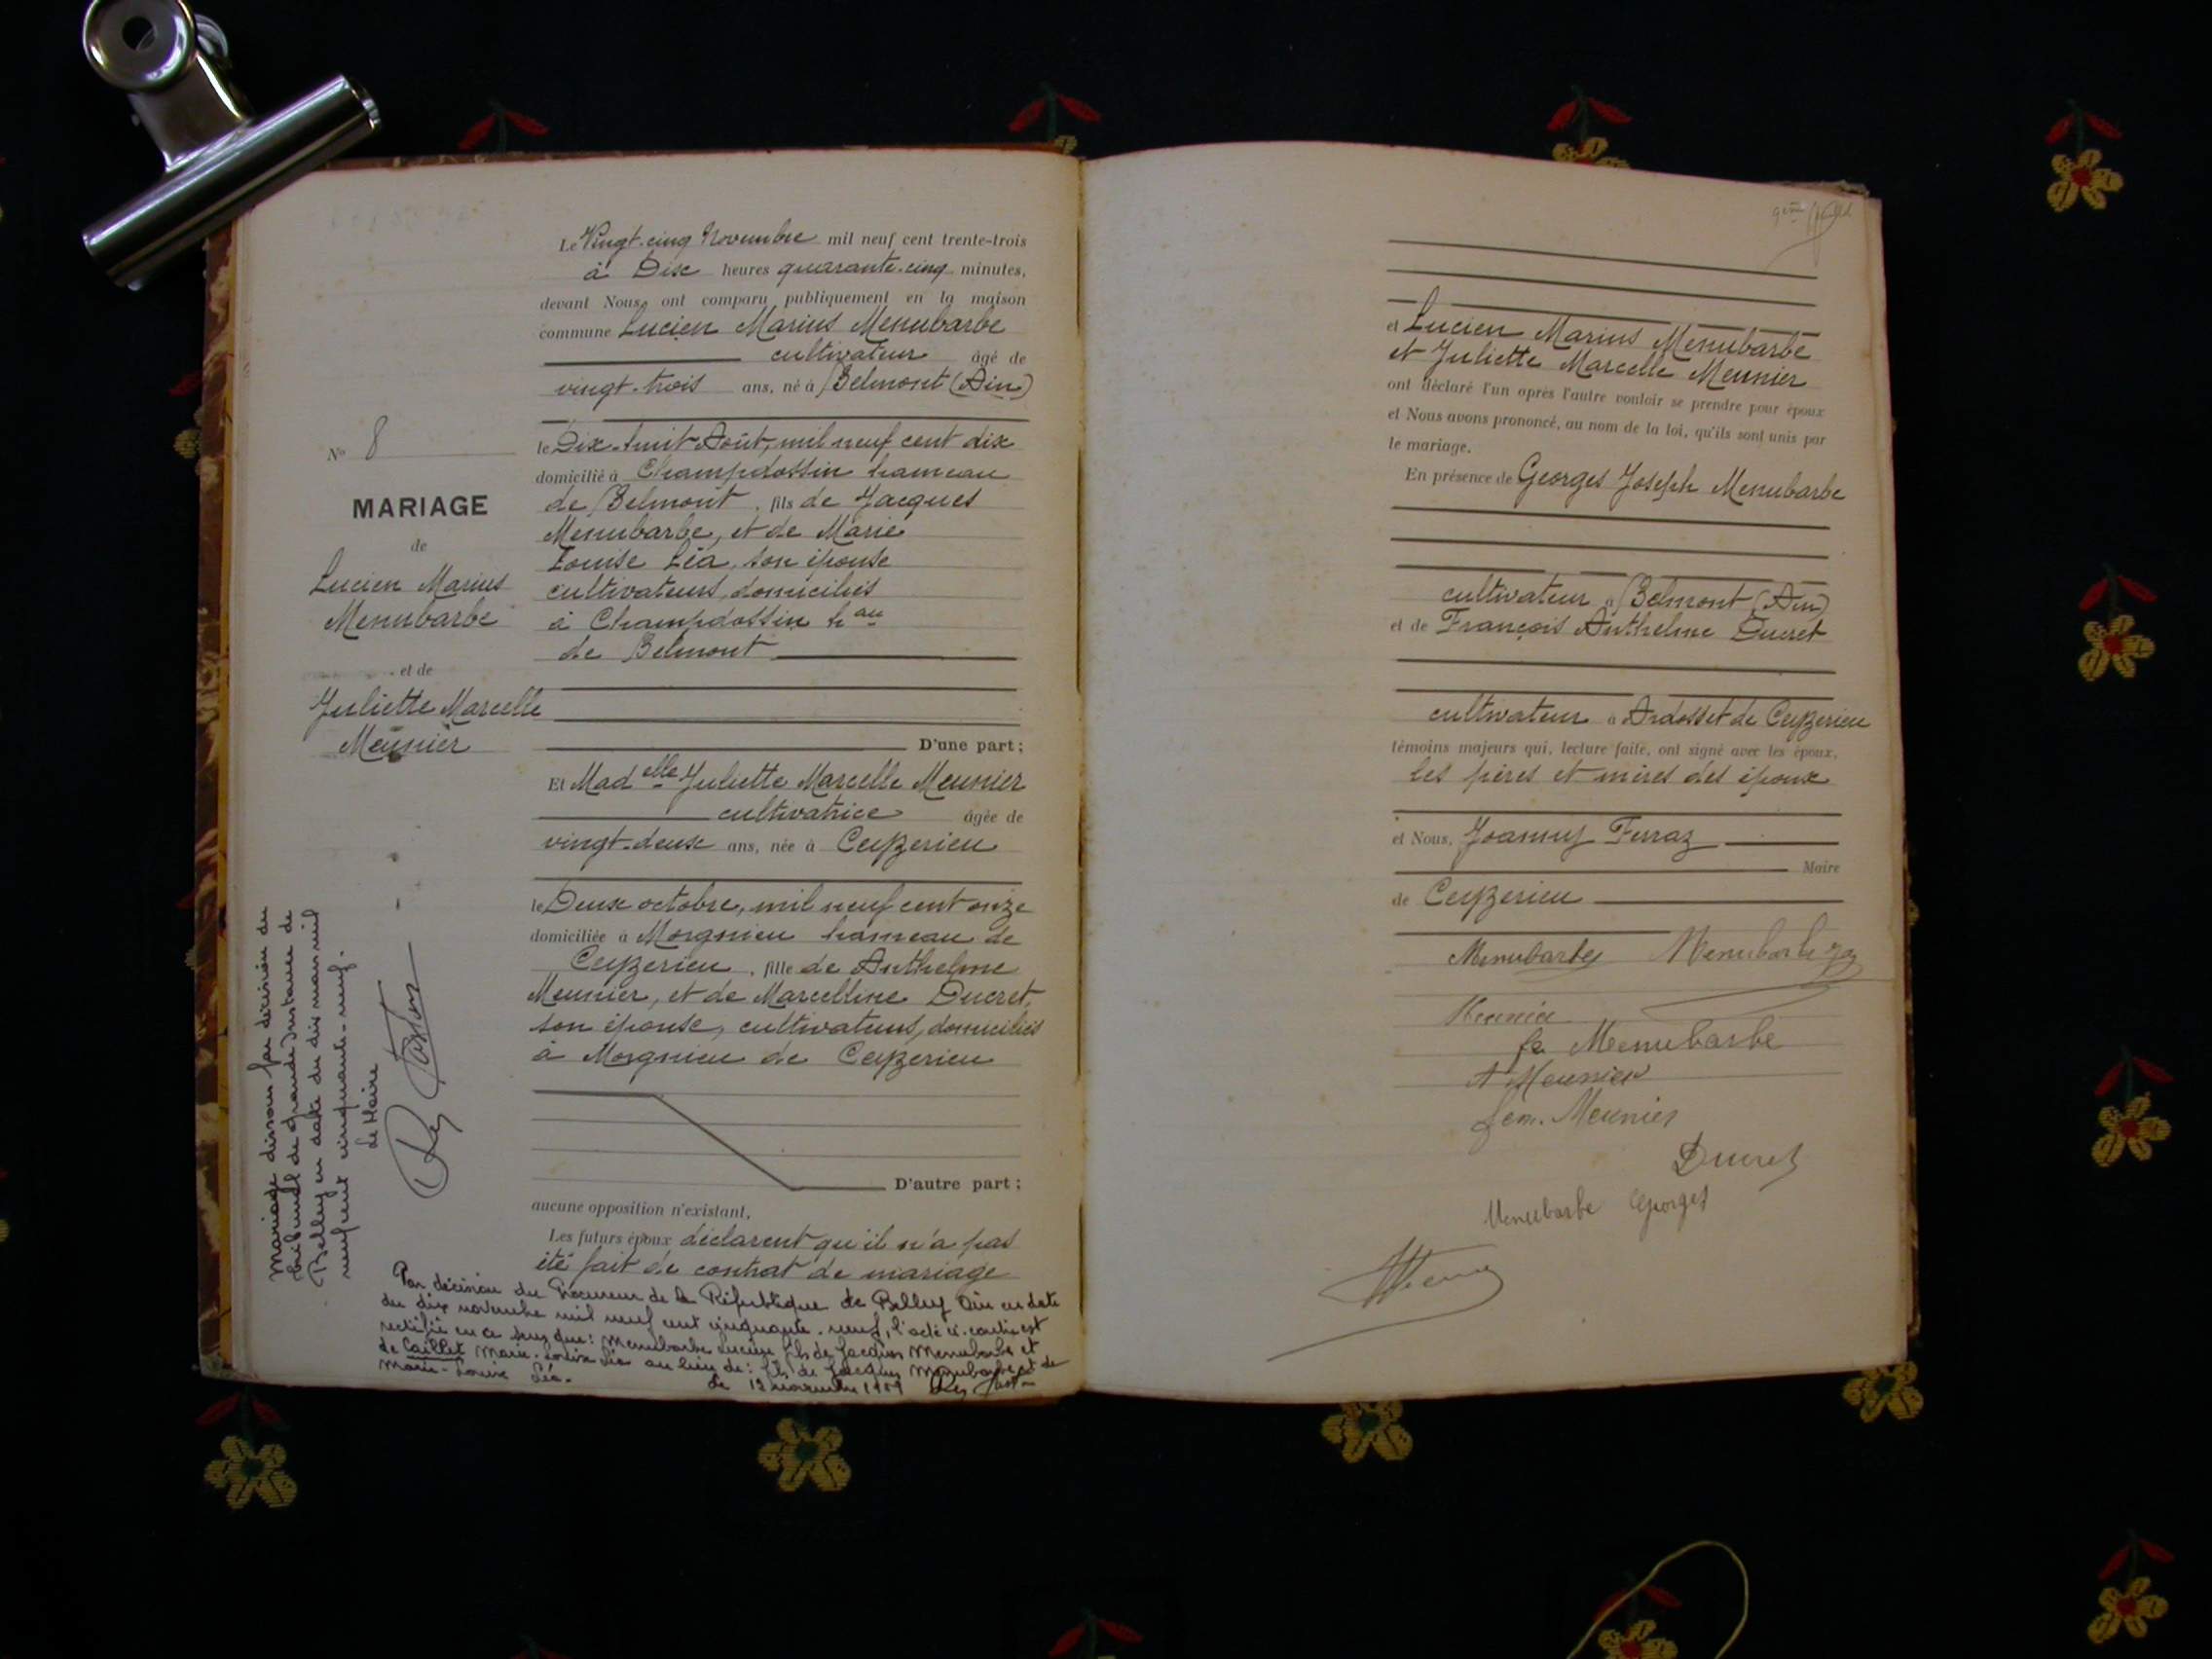 Le Vingt-cinq Novembre mil neuf cent trente-trois
à Dix heures quarante-cinq minutes,
devant Nous, ont comparu publiquement en la maison
commune Lucien Marius Menubarbe
cultivateur âgé de
vingt-trois ans, né à Belmont (Ain)
le Dix-huit Août, mil neuf cent dix
domicilié à Champdossin hameau
de Belmont, fils de Jacques
Menubarbe, et de Marie
Louise Léa, son épouse
cultivateurs, domiciliés
à Champdossin hau
de Belmont
D'une part;
Et Madelle Juliette Marcelle Meunier
cultivatrice âgée de
vingt-deux ans, née à Ceyzerieu
le Deux octobre, mil neuf cent onze
domiciliée à Morgnieu hameau de
Ceyzerieu, fille de Anthelme
Meunier, et de Marcelline Ducret,
son épouse, cultivateurs, domiciliés
à Morgnieu de Ceyzerieu
D'autre part;
aucune opposition n'existant,
Les futurs époux déclarent qu'il n'a pas
été fait de contrat de mariage
Par décision du Procureur de la République de Belley Ain en date
du dix novembre mil neuf cent cinquante-neuf, l'acte ci-contre est
rectifié en ce sens que: Menubarbe Lucien fils de Jacques Menubarbe et
de Caillet Marie-Louise Léa au lieu de: fils de Jacques Menubarbe et de
Marie-Louise Léa.
Le 12 novembre 1959
No 8
MARIAGE
de
Lucien Marius
Menubarbe
et de
Juliette Marcelle
Meunier
Mariage dissous par décision du
tribunal de Grande Instance de
Belley en date du dix mars mil
neuf cent cinquante-neuf.
Le Maire
et Lucien Marius Menubarbe
et Juliette Marcelle Meunier
ont déclaré l'un après l'autre vouloir se prendre pour époux
et Nous avons prononcé, au nom de la loi, qu'ils sont unis par
le mariage.
En présence de Georges Joseph Menubarbe
cultivateur à Belmont (Ain)
et de François Anthelme Ducret
cultivateur à Ardosset de Ceyzerieu
témoins majeurs qui, lecture faite, ont signé avec les époux,
les pères et mères des époux
et Nous, Joanny Ferraz
Maire
de Ceyzerieu
Menubarbe Menubarbe
Meunier
fe Menubarbe
A Meunier
fem. Meunier
Ducret
Menubarbe Georges